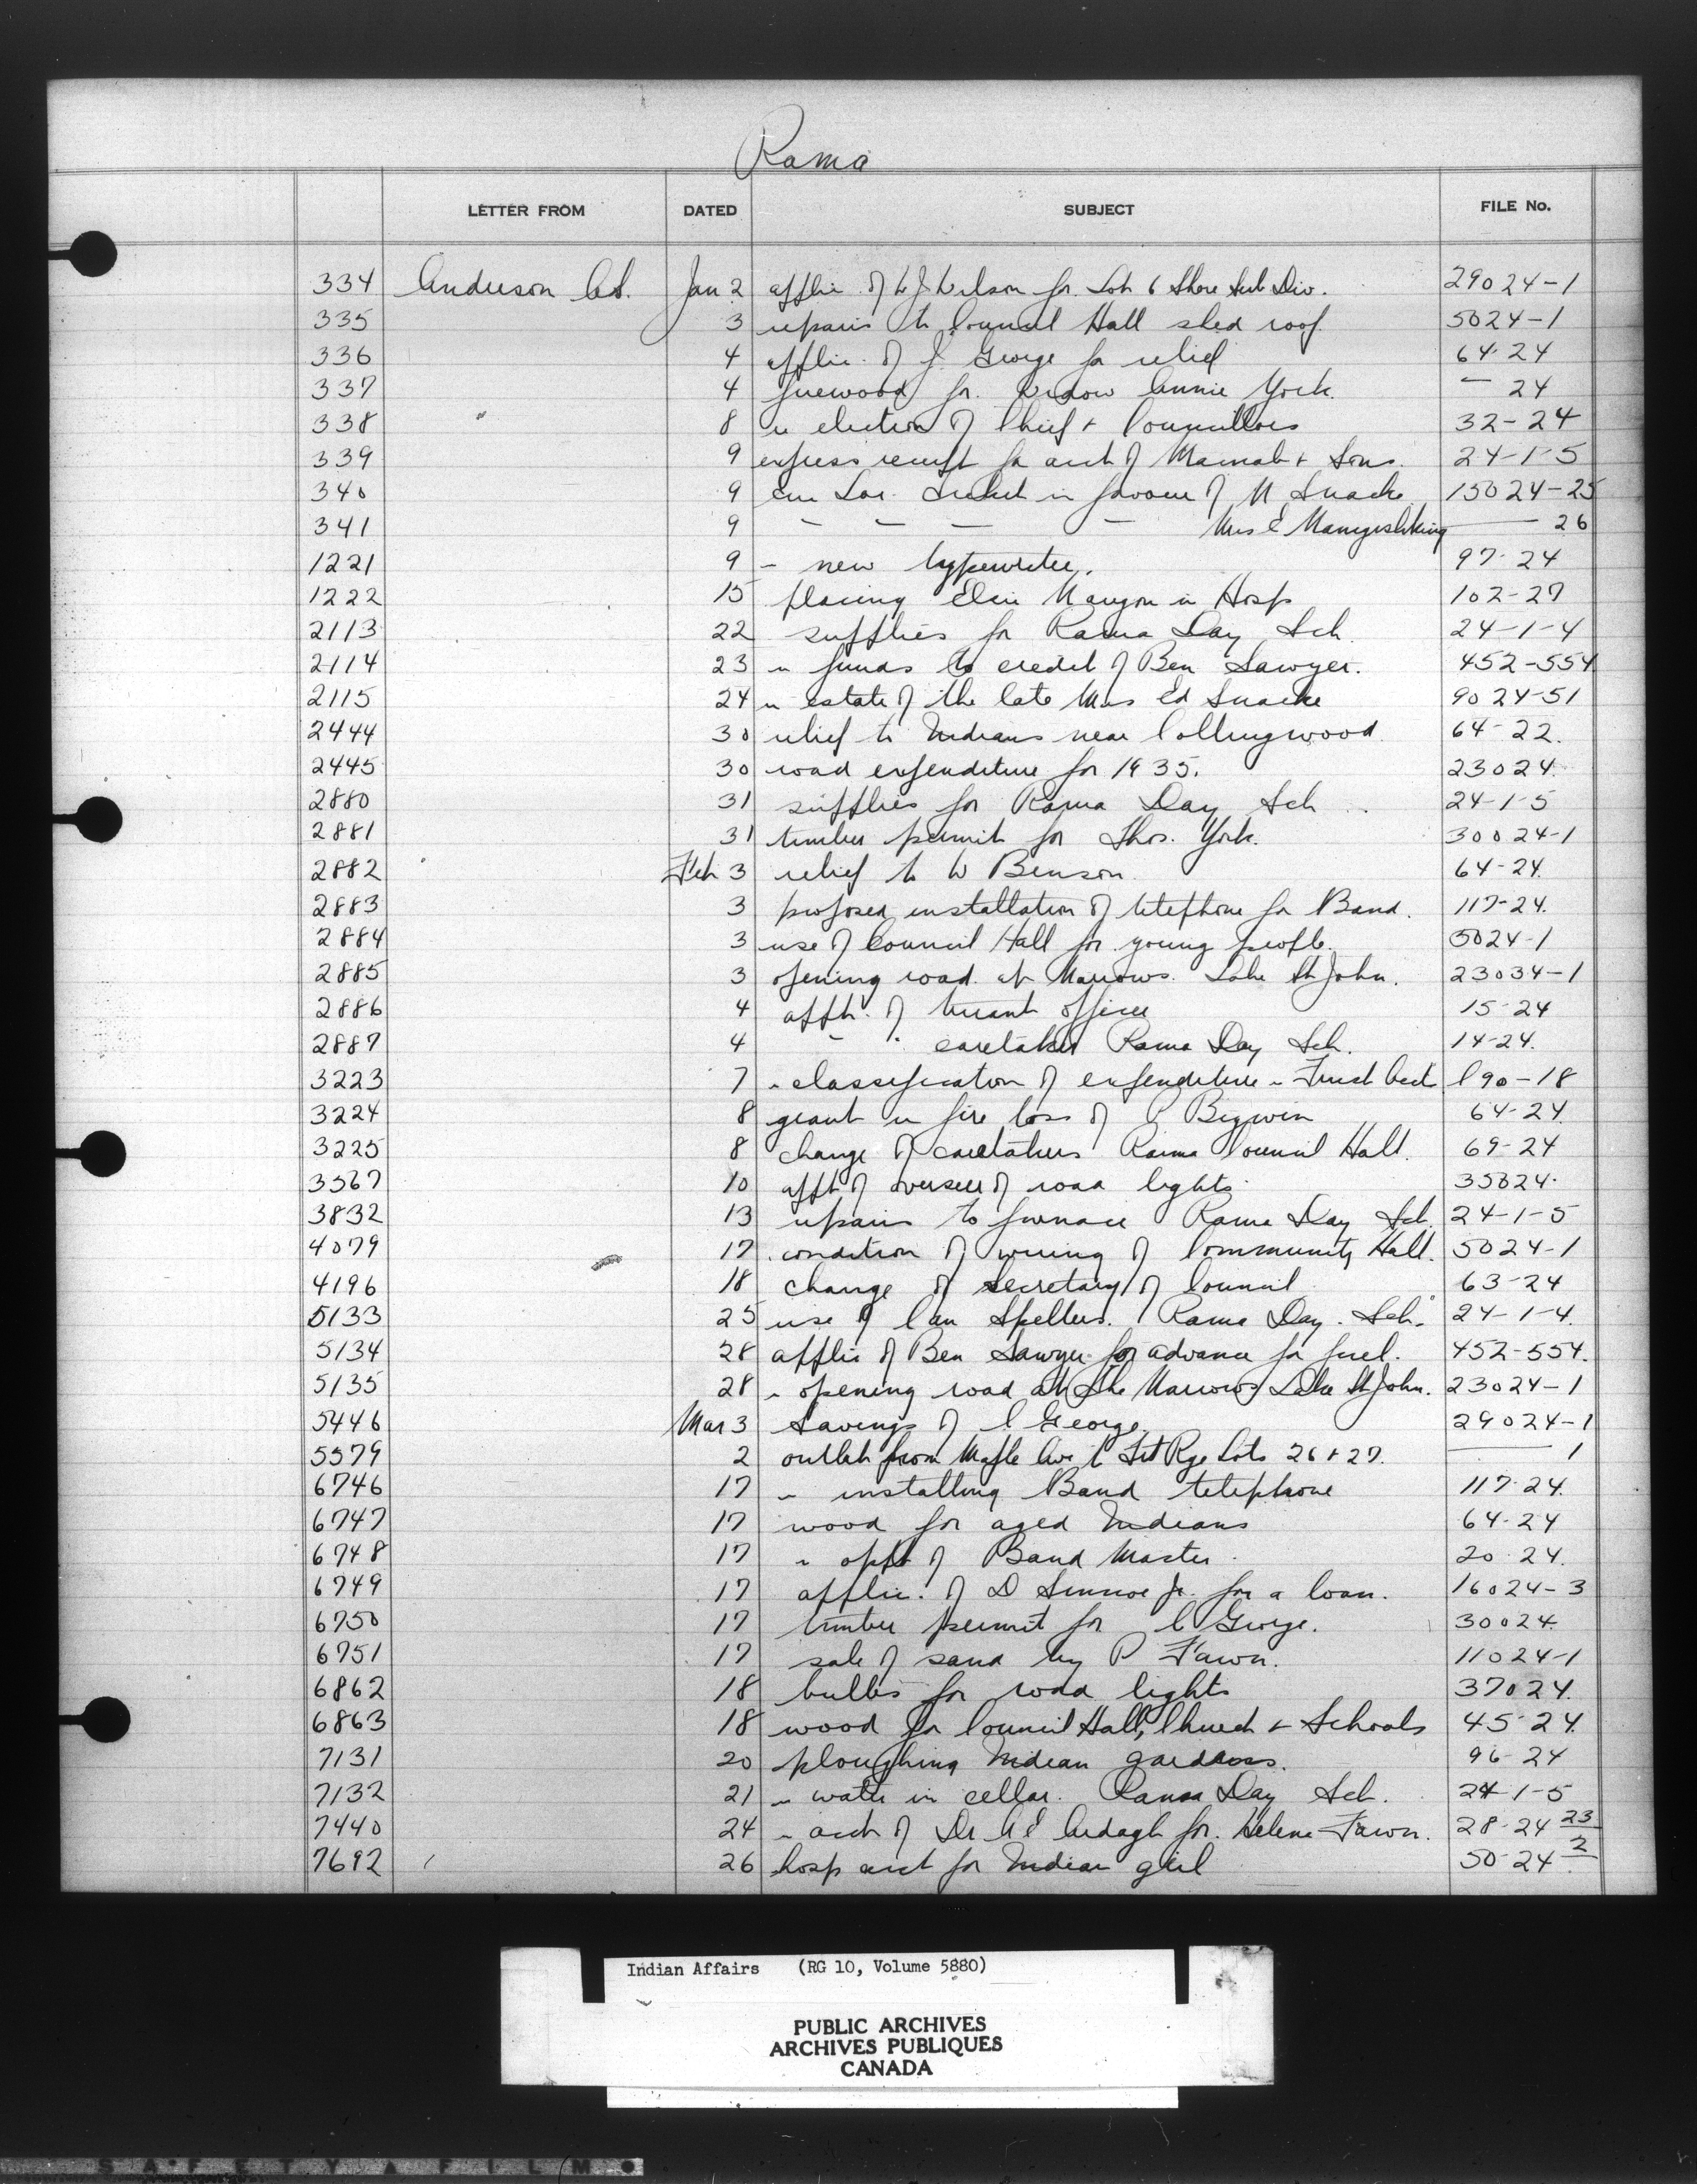 Rama
LETTER FROM DATED SUBJECT FILE No.
334 Anderson A.S. Jan 2 applic of W J Wilson for Lot 6 Shore Sub Div. 29024-1
335 3 repairs to Council Hall shed roof 5024-1
336 4 applic. of J. George for relief 64-24
337 4 firewood for Widow Annie York. — 24
338 8 re election of Chief & Councillors 32-24
339 9 express receipt for acct of & Sons. 24-1-5
340 9 in favour of N Snache 15024-25
341 9 — — — — Mrs E Manigishking — 26
1221 9 - new typewriter. 97-24
1222 15 placing Elsie in Hosp 102-27
2113 22 supplies for Rama Day Sch 24-1-4
2114 23 re funds to credit of Ben Sawyer. 452-554
2115 24 re estate of the late Mrs Ed Snache 9024-51
2444 30 relief to Indians near Collingwood 64-22.
2445 30 road expenditure for 1935. 23024.
2880 31 supplies for Rama Day Sch 24-1-5
2881 31 timber permit for Thos. York. 30024-1
2882 Feb 3 relief to W Benson 64-24.
2883 3 proposed installation of telephone for Band. 117-24.
2884 3 use of Council Hall for young people. 5024-1
2885 3 opening road at Narrows. Lake St John. 23034-1
2886 4 appt. of truant officer 15-24
2887 4 " " caretaker Rama Day Sch. 14-24.
3223 7 re classification of expenditure re Trust Acct 190-18
3224 8 grant re fire loss of P Bigwin 64-24
3225 8 change of caretakers Rama Council Hall. 69-24
3567 10 appt of overseer of road lights 35024.
3832 13 repairs to furnace Rama Day Sch. 24-1-5
4079 17 condition of wiring of Community Hall. 5024-1
4196 18 change of secretary of Council 63-24
5133 25 use of Can Spellers. Rama Day. Sch. 24-1-4.
5134 28 applic of Ben Sawyer for advance for fuel. 452-554.
5135 28 re opening road at the Narrows Lake St John. 23024-1
5446 Mar 3 Savings of C George. 29024-1
5579 2 outlet from Maple Ave to Frt Rge Lots 26 & 27. — 1
6746 17 re installing Band telephone 117-24.
6747 17 wood for aged Indians 64-24
6748 17 re appt of Band Master. 20-24.
6749 17 applic. of D Simcoe Jr. for a loan. 16024-3
6750 17 timber permit for C George. 30024.
6751 17 sale of sand by P Fawn. 11024-1
6862 18 bulbs for road lights 37024.
6863 18 wood for Council Hall, Church & Schools 45-24.
7131 20 ploughing Indian gardens. 96-24
7132 21 re water in cellar. Rama Day Sch. 24-1-5
7440 24 re acct of Dr A E Ardagh for. Helene Fawn. 28-24 23/2
7692 26 hosp acct for Indian girl 50-24
Indian Affairs (RG 10, Volume 5880)
PUBLIC ARCHIVES
ARCHIVES PUBLIQUES
CANADA
SAFETY FILM